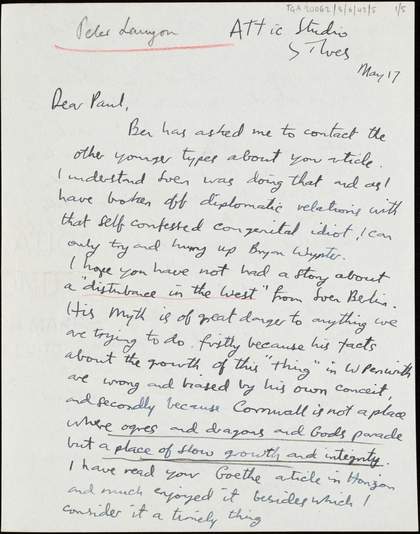 TGA 20062/3/6/47/5 1/5
Peter Lanyon
Attic Studio
St Ives
May 17
Dear Paul,
Ben has asked me to contact the
other younger types about your article.
I understand Sven was doing that and as I
have broken off diplomatic relations with
that self confessed congenital idiot, I can
only try and hurry up Bryan Wynter.
I hope you have not had a story about
a "disturbance in the West" from Sven Berlin.
His Myth is of great danger to anything we
are trying to do. firstly because his facts
about the growth of this "thing" in W Penwith
are wrong and biased by his own conceit,
and secondly because Cornwall is not a place
where ogres and dragons and Gods parade
but a place of slow growth and integrity.
I have read your Goethe article in Horizon
and much enjoyed it besides which I
consider it a timely thing